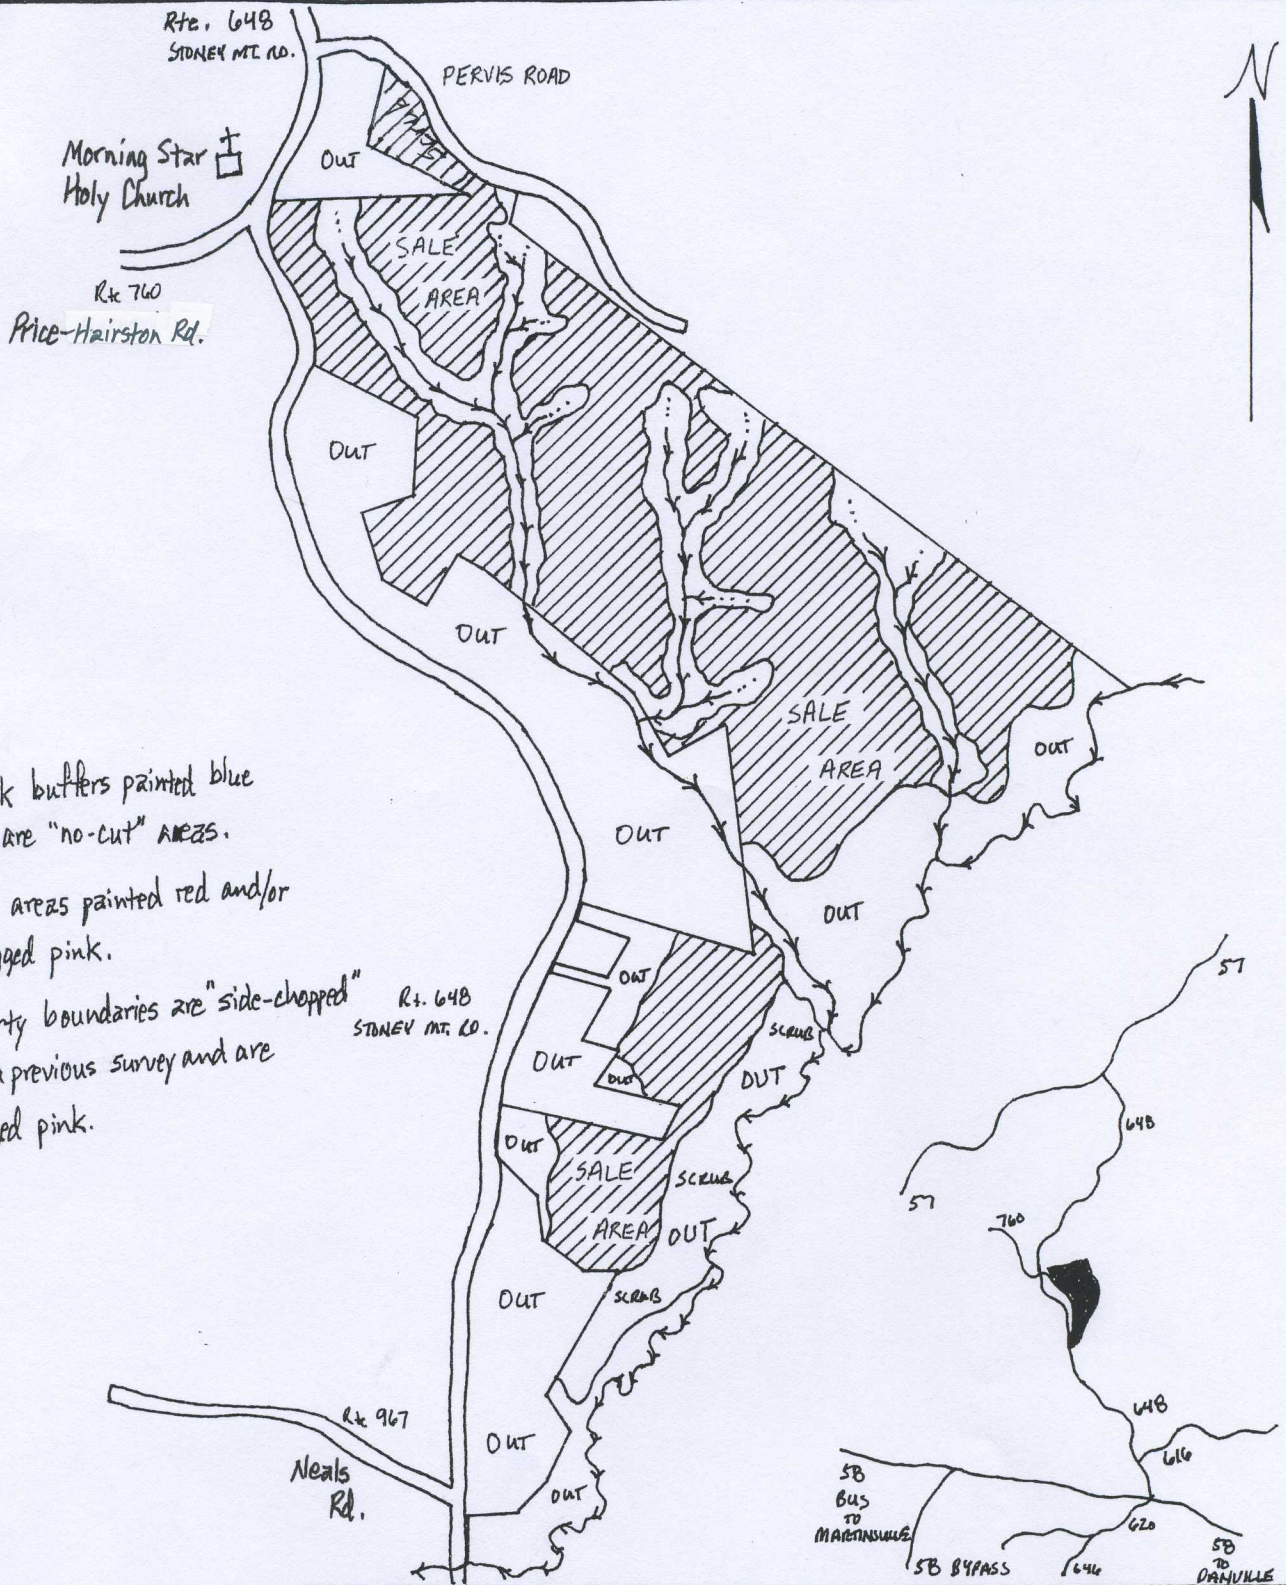 Rte. 648
STONEY MT. RD.
PERVIS ROAD
N
Morning Star
Holy Church
OUT
SALE
AREA
Rte 760
Price-Hairston Rd.
OUT
OUT
SALE
AREA
OUT
k buffers painted blue
are "no-cut" areas.
OUT
areas painted red and/or
gged pink.
OUT
OUT
rty boundaries are "side-chopped"
previous survey and are
ed pink.
Rt. 648
STONEY MT. RD.
SCRUB
OUT
OUT
OUT
OUT
SALE
AREA
SCRUB
OUT
OUT
SCRUB
Rte 967
Neals
Rd.
OUT
OUT
57
648
57
760
648
616
58
BUS
TO
MARTINSVILLE
58 BYPASS
620
646
58
TO
DANVILLE